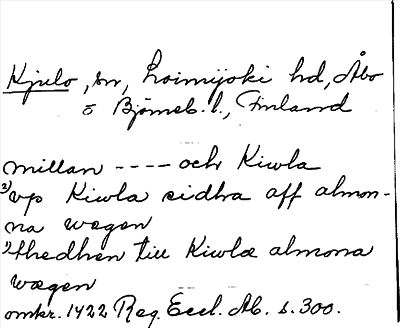 Kjulo, sn, Loimijoki hd, Åbo
o Björneb. l., Finland
millan ---- och Kiwla
3) vp Kiwla sidhra aff almon-
na wægen
4) thedhen till Kiwlæ almona
wægen
omkr. 1422 Reg. Eccl. Ab. s. 300.